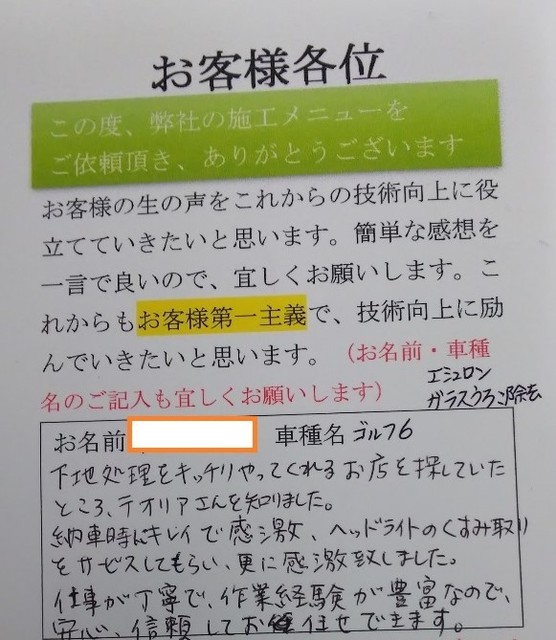 お客様各位
この度、弊社の施工メニューを
ご依頼頂き、ありがとうございます
お客様の生の声をこれからの技術向上に役
立てていきたいと思います。簡単な感想を
一言で良いので、宜しくお願いします。こ
れからもお客様第一主義で、技術向上に励
んでいきたいと思います。(お名前・車種
名のご記入も宜しくお願いします)
エシュロン
ガラスウロコ除去
お名前 車種名 ゴルフ6
下地処理をキッチリやってくれるお店を探していた
ところ、テオリアさんを知りました。
納車時にキレイで感激、ヘッドライトのくすみ取り
をサービスしてもらい、更に感激致しました。
仕事が丁寧で、作業経験が豊富なので、
安心、信頼してお任せできます。